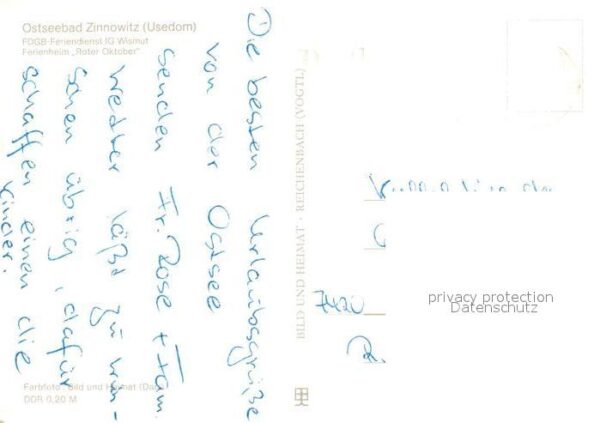 Ostseebad Zinnowitz (Usedom)
FDGB-Feriendienst IG Wismut
Ferienheim „Roter Oktober"
Die besten Urlaubsgrüße
von der Ostsee
senden Fr. Rose + Fam.
Wetter läßt zu wün-
schen übrig, dafür
schaffen einen die
Kinder.
BILD UND HEIMAT · REICHENBACH (VOGTL)
7420
privacy protection
Datenschutz
Farbfoto: Bild und Heimat
DDR 0,20 M